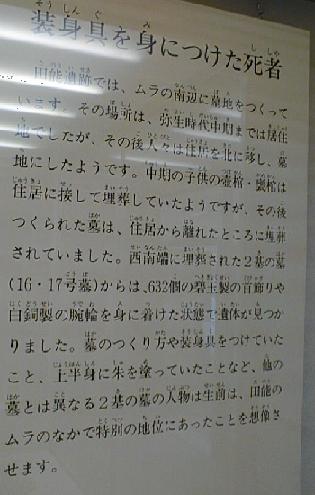 装身具を身につけた死者
田能遺跡では、ムラの南辺に墓地をつくって
います。その場所は、弥生時代中期までは居住
地でしたが、その後人々は住居を北に移し、墓
地にしたようです。中期の子供の壺棺・甕棺は
住居に接して埋葬していたようですが、その後
つくられた墓は、住居から離れたところに埋葬
されていました。西南端に埋葬された2基の墓
(16・17号墓)からは、632個の碧玉製の首飾りや
白銅製の腕輪を身に着けた状態で遺体が見つか
りました。墓のつくり方や装身具をつけていた
こと、上半身に朱を塗っていたことなど、他の
墓とは異なる2基の墓の人物は生前は、田能の
ムラのなかで特別の地位にあったことを想像さ
せます。